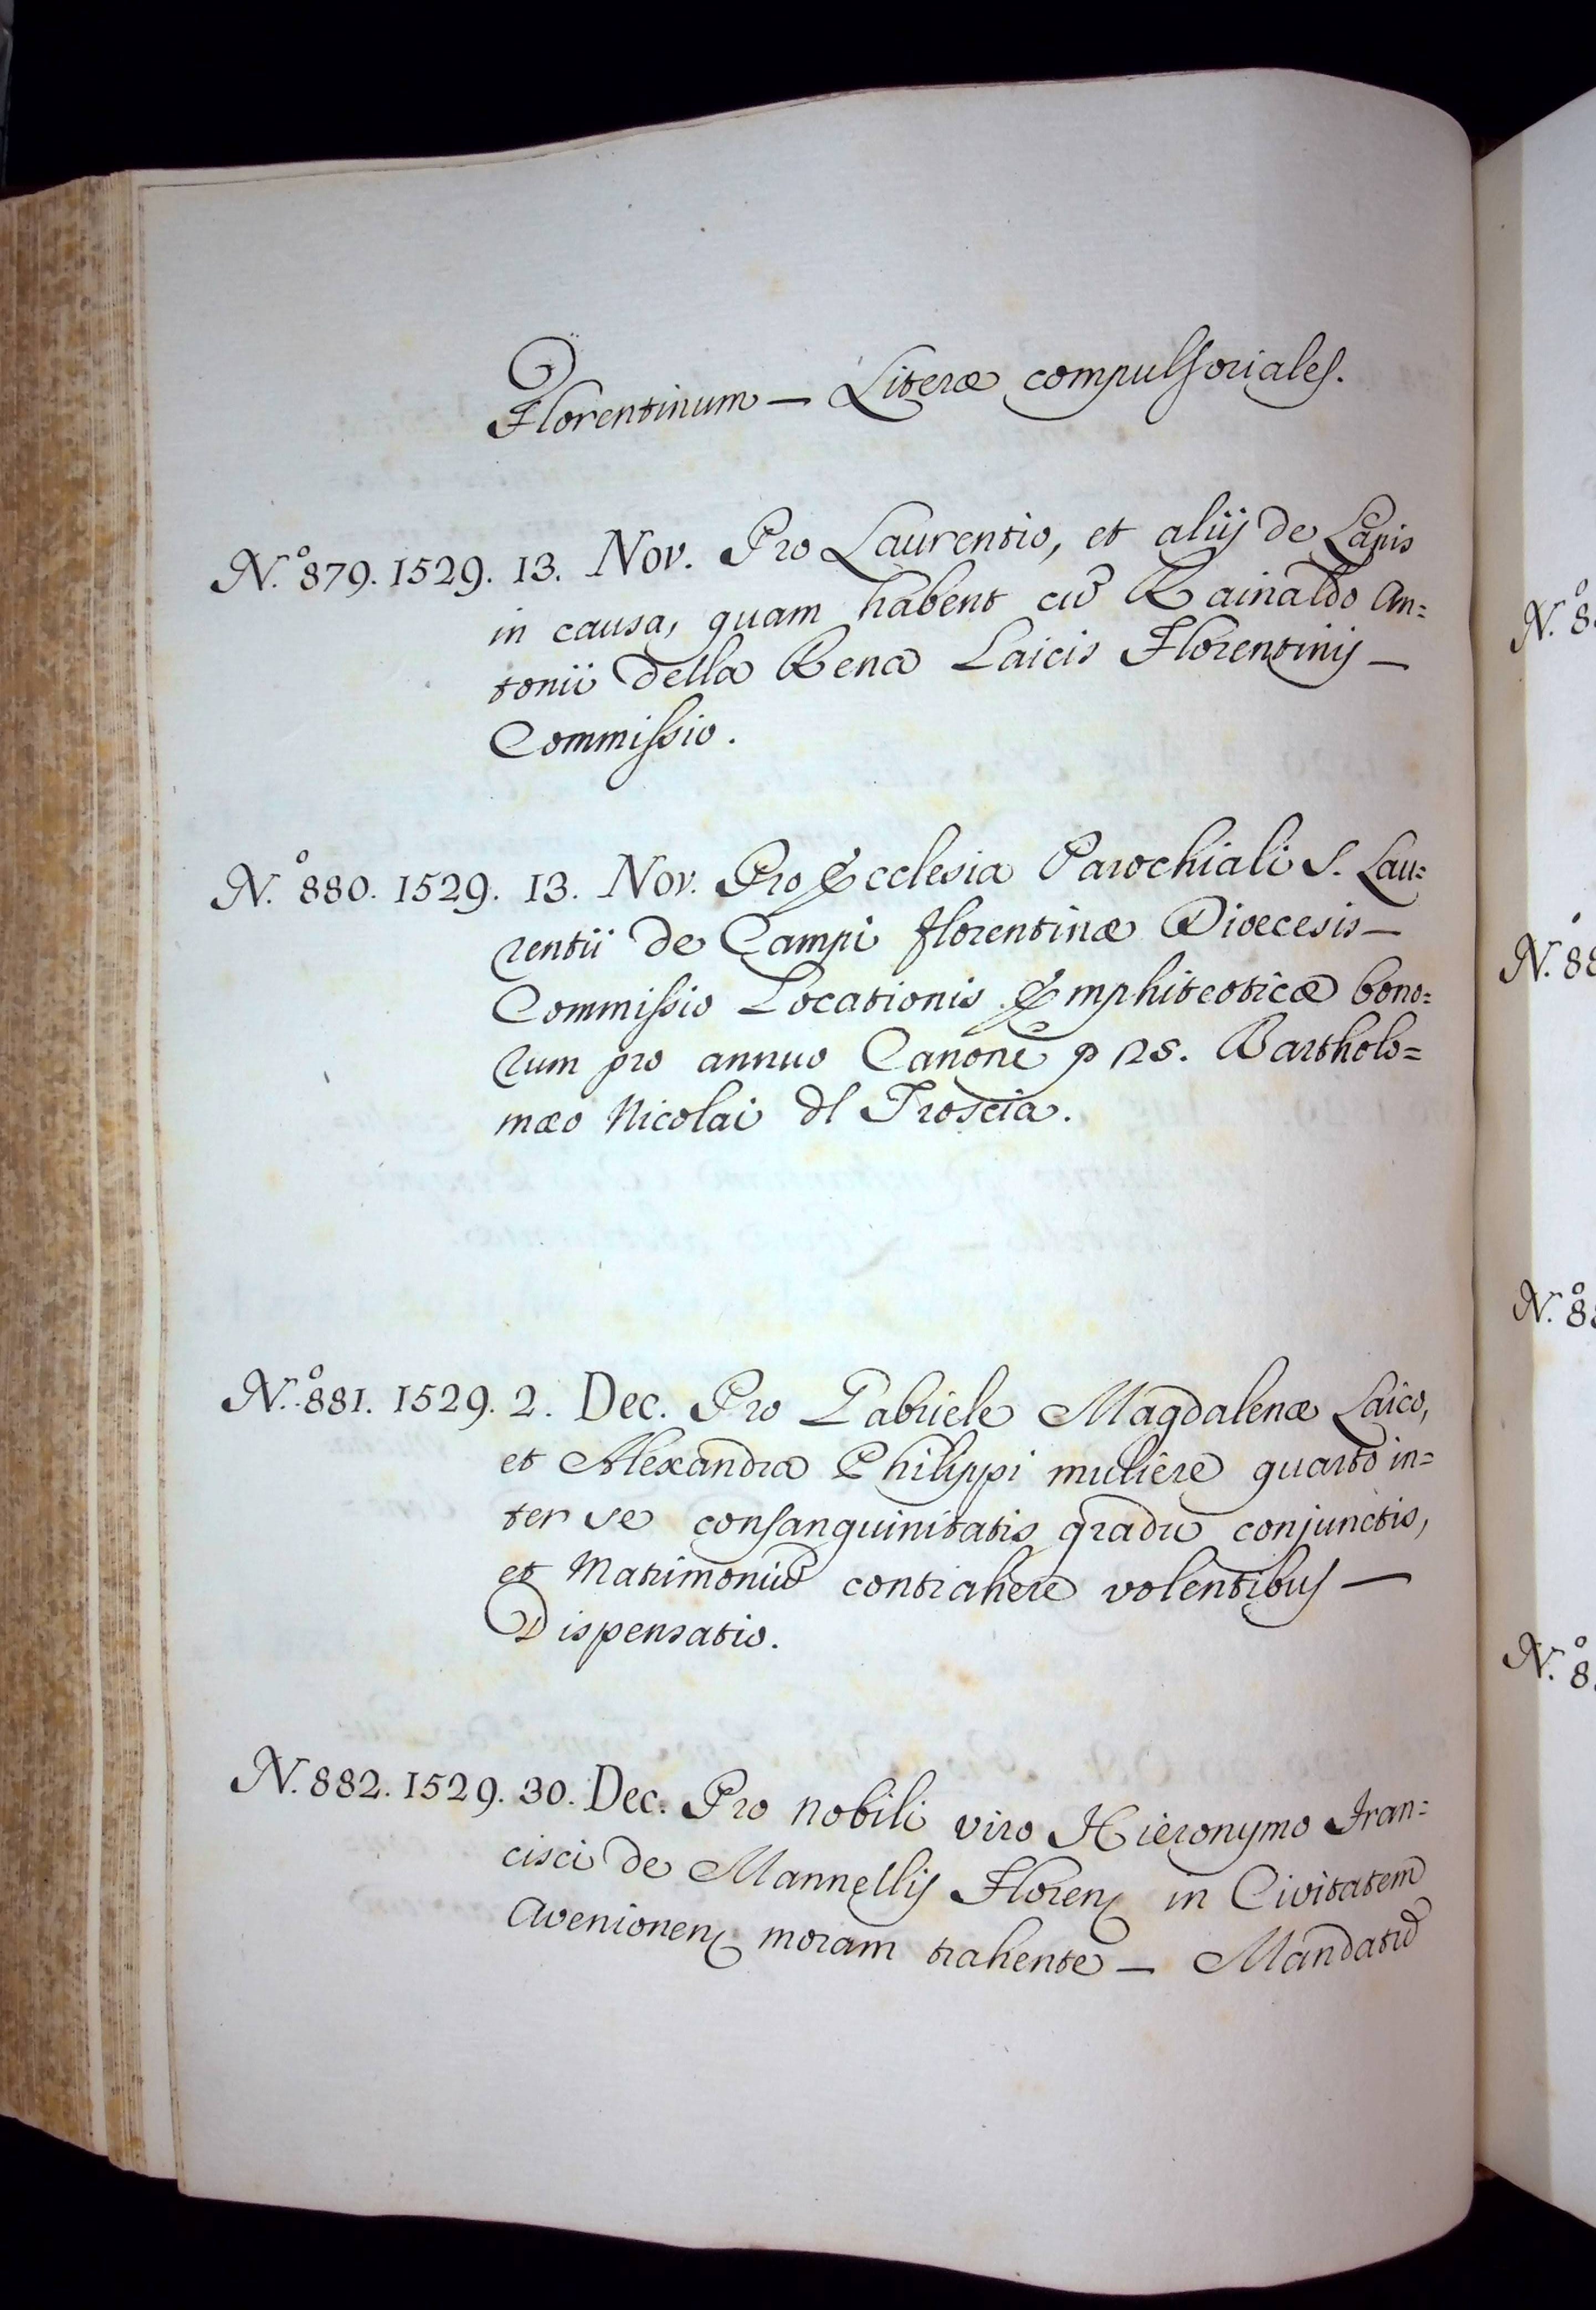 Florentinum — Literæ compulsoriales.
N.º 879. 1529. 13. Nov. Pro Laurentio, et alijs de Lapis
in causa, quam habent cũ Rainaldo An=
tonii della Rena Laicis Florentinis —
Commissio.
N.º 880. 1529. 13. Nov. Pro Ecclesia Parochiali S. Lau=
rentii de Campi florentinæ Dioecesis —
Commissio Locationis Emphiteoticæ bono=
rum pro annuo Canone Bartholo=
mæo Nicolai dl Troscia.
N.º 881. 1529. 2. Dec. Pro Gabriele Magdalenæ Laico,
et Alexandra Philippi muliere quarto in=
ter se consanguinitatis gradu conjunctis,
et Matrimoniũ contrahere volentibus —
Dispensatio.
N. 882. 1529. 30. Dec. Pro nobili viro Hieronymo Fran=
cisci de Mannellis Floren. in Civitatem
Avenionen. moram trahente — Mandatũ
N.º 8
N. 88
N.º 8
N.º 8